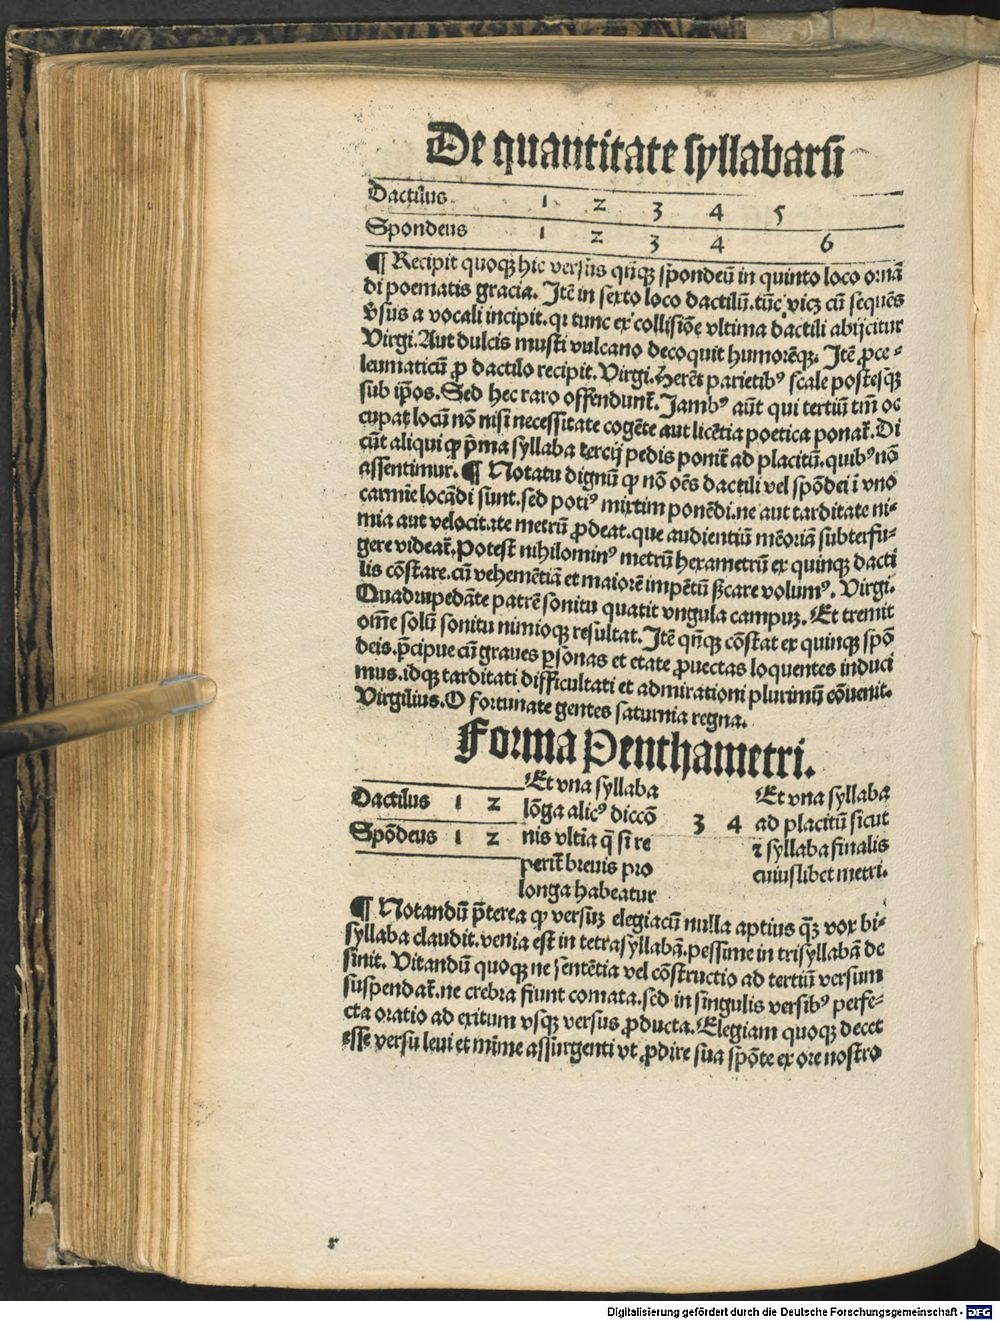 De quantitate syllabarū
Dactilus 1 2 3 4 5
Spondeus 1 2 3 4 6
¶ Recipit quoqꝫ hic versus qn̄qꝫ spondeū in quinto loco ornā
di poematis gracia. Itē in sexto loco dactilū. tūc vicꝫ cū sequēs
v̄sus a vocali incipit. qꝛ tunc ex collisiōe vltima dactili abijcitur
Virgi. Aut dulcis musti vulcano decoquit humorēqꝫ. Itē ꝓce⸗
leumaticū ꝓ dactilo recipit. Virgi. Herēt parietibꝰ scale postesqꝫ
sub ip̄os. Sed hec raro offendunt᷑. Iambꝰ aūt qui tertiū tm̄ oc
cupat locū nō nisi necessitate cogēte aut licētia poetica ponat᷑. Di
cūt aliqui ꝙ p̄ma syllaba tercij pedis ponit᷑ ad placitū. quibꝰ nō
assentimur. ¶ Notatu dignū ꝙ nō oēs dactili vel spōdei ī vno
carmīe locādi sunt. sed potiꝰ mixtim ponēdi. ne aut tarditate ni⸗
mia aut velocitate metrū ꝓdeat. que audientiū mēoriā subterfu⸗
gere videat᷑. Potest nihilominꝰ metrū hexametrū ex quinqꝫ dacti
lis cōstare. cū vehemētiā et maiorē impētū ſ̄care volumꝰ. Virgi.
Quadrupedāte patrē sonitu quatit vngula campuꝫ. Et tremit
om̄e solū sonitu nimioqꝫ resultat. Itē qn̄qꝫ cōstat ex quinqꝫ spō
deis. p̄cipue cū graues ꝑsonas et etate ꝓuectas loquentes induci
mus. idqꝫ tarditati difficultati et admirationi plurimū cōuenit.
Virgilius. O fortunate gentes saturnia regna.
Forma Penthametri.
Dactilus 1 2
Spōdeus 1 2
Et vna syllaba
lōga alicꝰ diccō
nis vltīa q̄ si re
perit᷑ breuis pro
longa habeatur
3 4
Et vna syllaba
ad placitū sicut
⁊ syllaba finalis
cuiuslibet metri.
¶ Notandū p̄terea ꝙ versuꝫ elegiacū nulla aptius qꝫ̄ vox bi⸗
syllaba claudit. venia est in tetrasyllabā. pessime in trisyllabā de
sinit. Vitandū quoqꝫ ne sentētia vel cōstructio ad tertiū versum
suspendat᷑. ne crebra fiunt comata. sed in singulis versibꝰ perfe⸗
cta oratio ad exitum vsqꝫ versus ꝓducta. Elegiam quoqꝫ decet
esse versu leui et mīme assurgenti vt ꝓdire sua spōte ex ore nostro
r
Digitalisierung gefördert durch die Deutsche Forschungsgemeinschaft - DFG